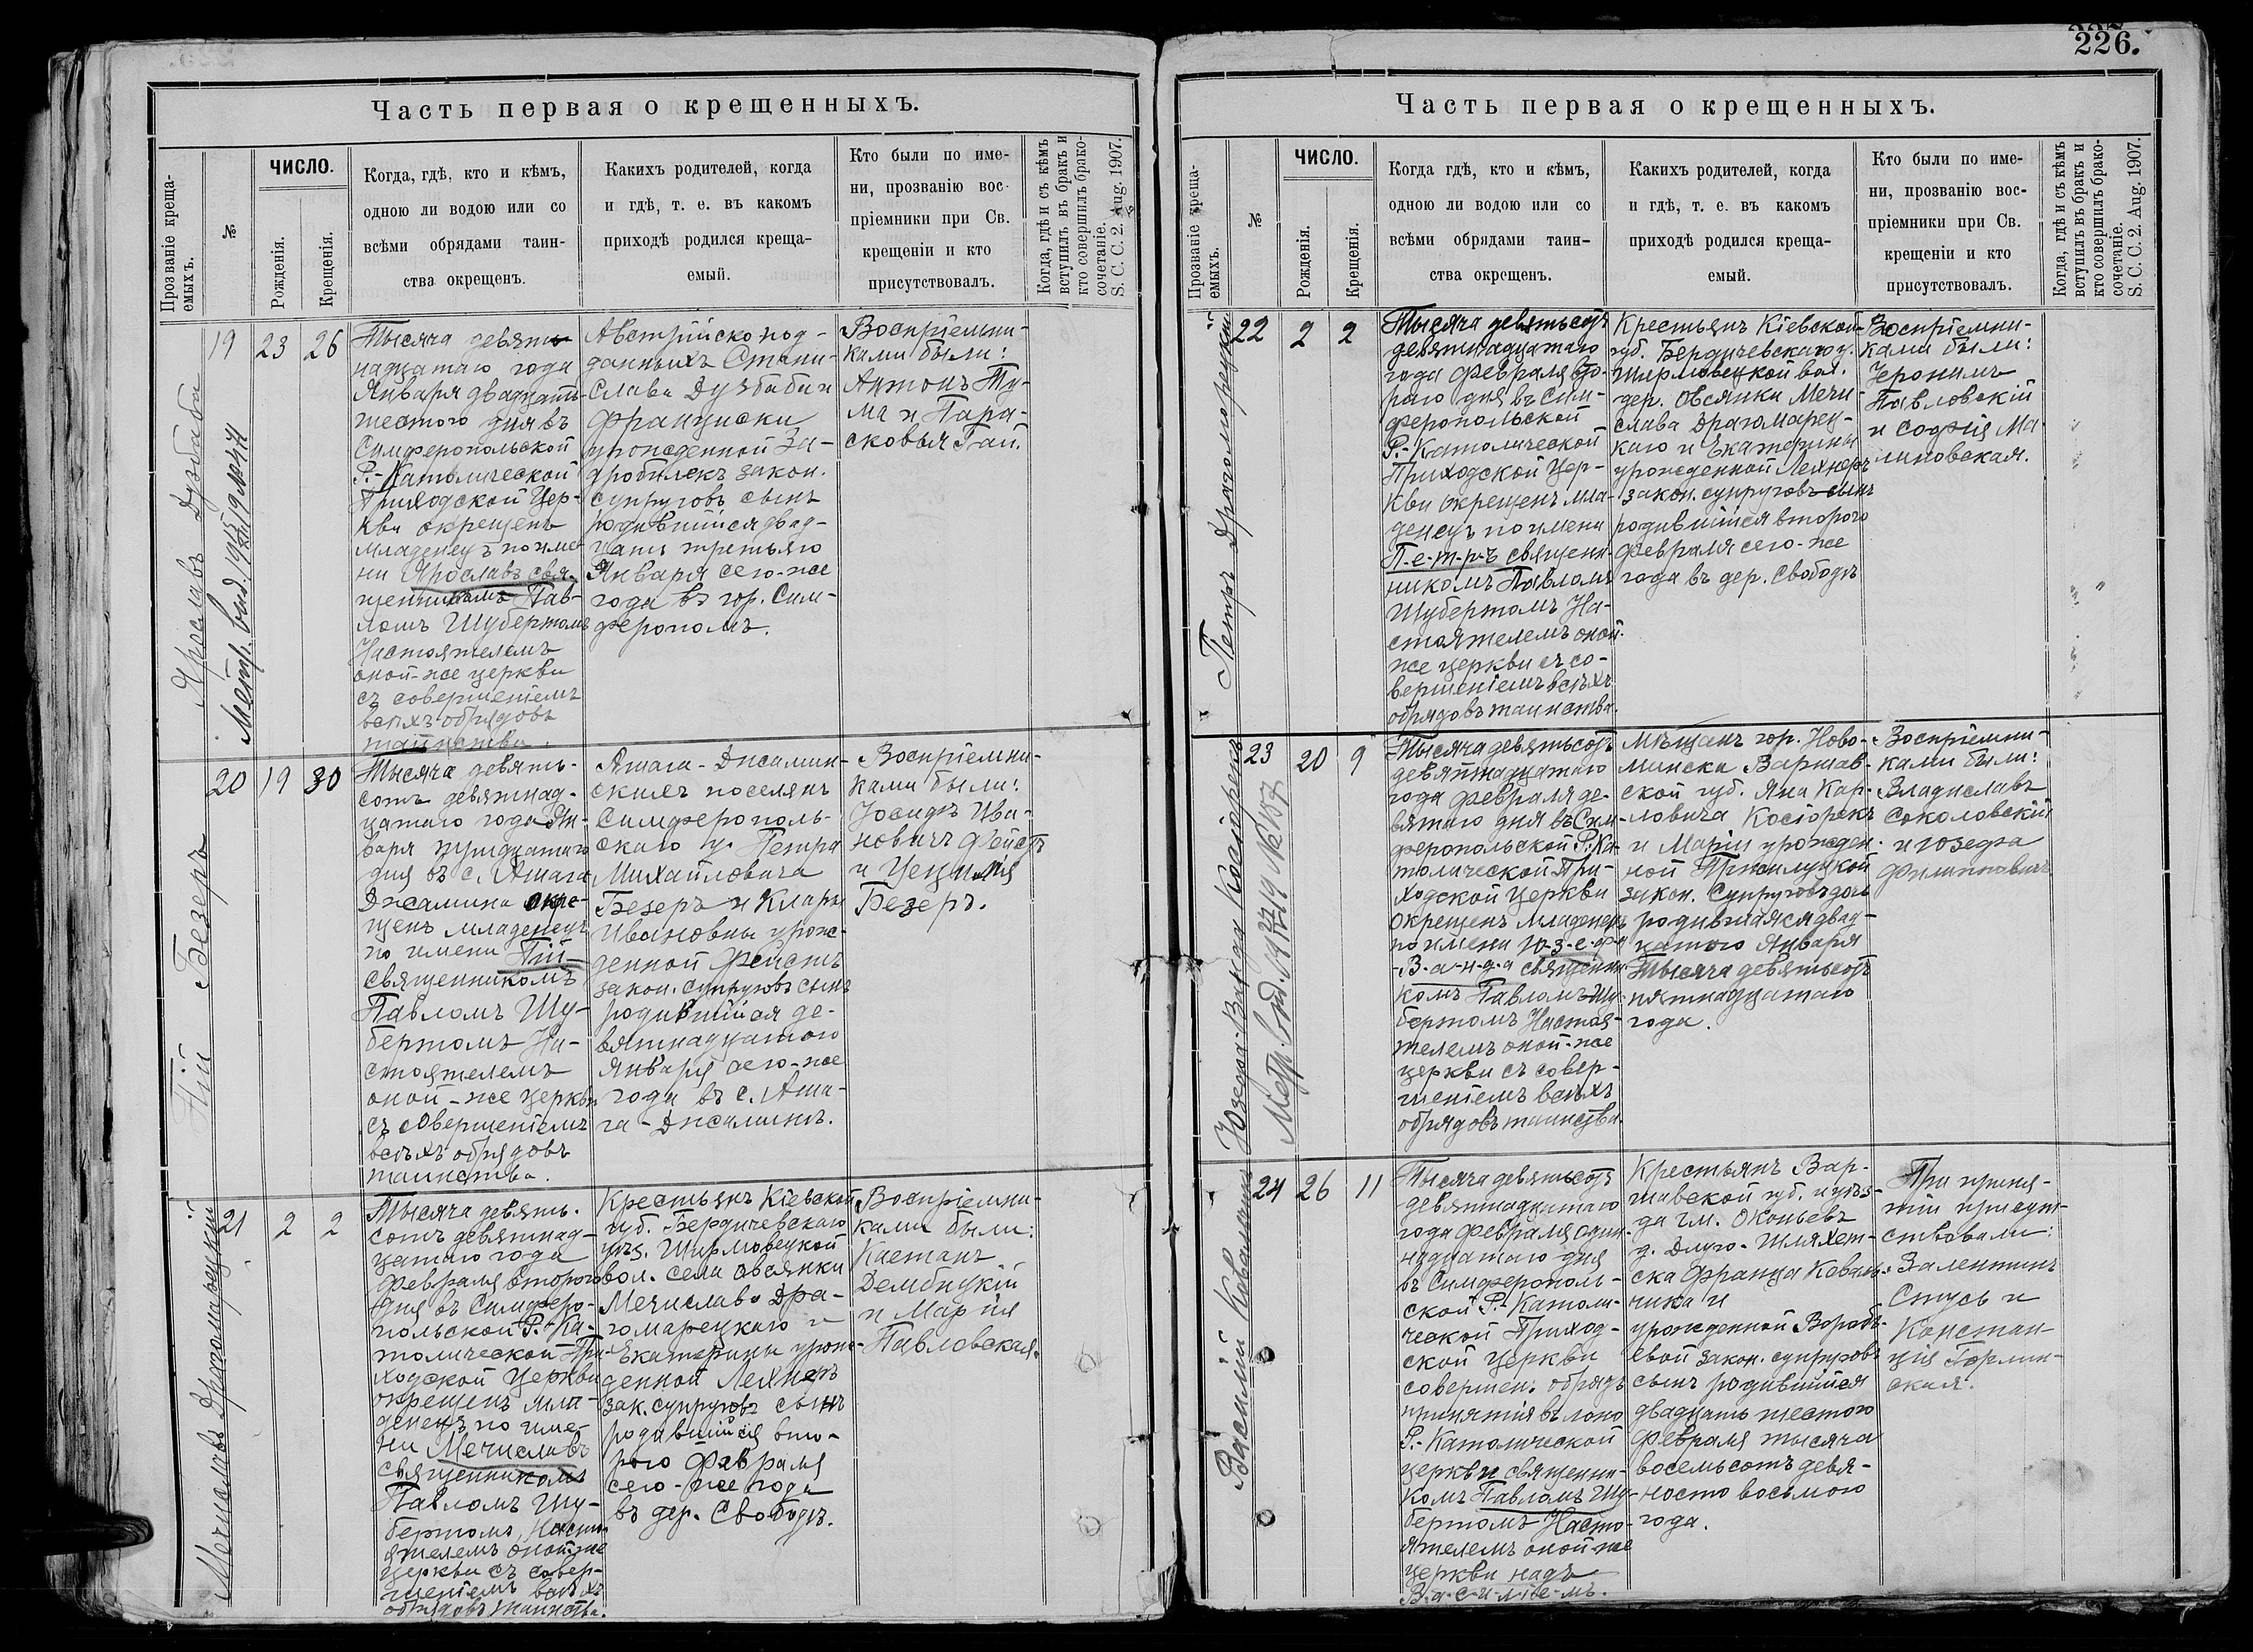 226.
Часть первая о крещенныхъ.
Прозваніе креща-
емыхъ.
№
ЧИСЛО.
Рожденія.
Крещенія.
Когда, гдѣ, кто и кѣмъ,
одною ли водою или со
всѣми обрядами таин-
ства окрещенъ.
Какихъ родителей, когда
и гдѣ, т. е. въ какомъ
приходѣ родился креща-
емый.
Кто были по име-
ни, прозванію вос-
пріемники при Св.
крещеніи и кто
присутствовалъ.
Когда, гдѣ и съ кѣмъ
вступилъ въ бракъ и
кто совершилъ брако-
сочетаніе.
S. C. C. 2. Aug. 1907.
Ярославъ Дузбаба
Метр. выд.
19
23
26
Тысяча девят
надцатаго года
Января двадцать
шестого дня въ
Симферопольской
Р.-Католической
Приходской Цер-
кви окрещенъ
младенецъ по име-
ни Ярославъ свя-
щенникомъ Пав-
ломъ Шубертомъ
Настоятелемъ
оной-же церкви
съ совершеніемъ
всѣхъ обрядовъ
таинства.
Австрійско под-
данныхъ Стани-
слава Дузбаба и
Франциски
урожденной За-
дробилекъ закон.
супруговъ сынъ
родившійся двад-
цать третьяго
Января сего-же
года въ гор. Сим-
ферополѣ.
Воспріемни-
ками были:
Антонъ Ту-
ма и Пара-
сковья Гай.
Пій Безеръ
20
19
30
Тысяча девять-
сотъ девятнад-
цатаго года Ян-
варя тридцатаго
дня въ с. Ашага
Джамина окре-
щенъ младенецъ
по имени Пій
священникомъ
Павломъ Шу-
бертомъ На-
стоятелемъ
оной-же церкви
съ совершеніемъ
всѣхъ обрядовъ
таинства.
Ашага-Джамин-
скихъ поселянъ
Симферополь-
скаго у. Петра
Михайловича
Безеръ и Клары
Ивановны урож-
денной Фейстъ
закон. супруговъ сынъ
родившійся де-
вятнадцатого
Января сего-же
года въ с. Аша-
га-Джаминъ.
Воспріемни-
ками были:
Іосифъ Ива-
новичъ Фейстъ
и Цецилія
Безеръ.
Мечиславъ Драгомарецкій
21
2
2
Тысяча девять-
сотъ девятнад-
цатаго года
Февраля второго
дня въ Симферо-
польской Р.-Ка-
толической При-
ходской Церкви
окрещенъ мла-
денецъ по име-
ни Мечиславъ
священникомъ
Павломъ Шу-
бертомъ Насто-
ятелемъ оной-же
церкви съ совер-
шеніемъ всѣхъ
обрядовъ таинства.
Крестьянъ Кіевской
губ. Бердичевскаго
уѣз. Ширмовецкой
вол. села Овсянки
Мечислава Дра-
гомарецкаго и
Екатерины урож-
денной Лехнеръ
зак. супруговъ сынъ
родившійся вто-
рого Февраля
сего-же года
въ дер. Свободѣ.
Воспріемни-
ками были:
Каетанъ
Дембицкій
и Марія
Павловская.
Часть первая о крещенныхъ.
Прозваніе креща-
емыхъ.
№
ЧИСЛО.
Рожденія.
Крещенія.
Когда гдѣ, кто и кѣмъ,
одною ли водою или со
всѣми обрядами таин-
ства окрещенъ.
Какихъ родителей, когда
и гдѣ, т. е. въ какомъ
приходѣ родился креща-
емый.
Кто были по име-
ни, прозванію вос-
пріемники при Св.
крещеніи и кто
присутствовалъ.
Когда, гдѣ и съ кѣмъ
вступилъ въ бракъ и
кто совершилъ брако-
сочетаніе.
S. C. C. 2. Aug. 1907.
Петръ Драгомарецкій
22
2
2
Тысяча девятьсотъ
девятнадцатаго
года Февраля вто-
рого дня въ Сим-
феропольской
Р.-Католической
Приходской Цер-
кви окрещенъ мла-
денецъ по имени
П-е-т-р-ъ священ-
никомъ Павломъ
Шубертомъ На-
стоятелемъ оной-
же церкви съ со-
вершеніемъ всѣхъ
обрядовъ таинства.
Крестьянъ Кіевской
губ. Бердичевскаго у.
Ширмовецкой вол.
дер. Овсянки Мечи-
слава Драгомарец-
каго и Екатерины
урожденной Лехнеръ
закон. супруговъ сынъ
родившійся второго
Февраля сего-же
года въ дер. Свободѣ
Воспріемни-
ками были:
Іеронимъ
Павловскій
и Софія Ма-
линовская.
Юзефа-Ванда Косіорекъ
Метр. выд. № 157
23
20
9
Тысяча девятьсотъ
девятнадцатаго
года Февраля де-
вятаго дня въ Сим-
феропольской Р.-Ка-
толической При-
ходской Церкви
окрещенъ младенецъ
по имени Ю-з-е-ф-а
-В-а-н-д-а священни-
комъ Павломъ Шу-
бертомъ Настоя-
телемъ оной-же
церкви съ совер-
шеніемъ всѣхъ
обрядовъ таинства.
Мѣщанъ гор. Ново-
минска Варшав-
ской губ. Яна Кар-
ловича Косіорекъ
и Маріи урожден-
ной Пржилуцкой
закон. супруговъ дочь
родившаяся двад-
цатого Января
Тысяча девятьсотъ
пятнадцатаго
года.
Воспріемни-
ками были:
Владиславъ
Соколовскій
и Юзефа
Филипповичъ
Василій Ковальчикъ
24
26
11
Тысяча девятьсотъ
девятнадцатаго
года Февраля один-
надцатаго дня
въ Симферополь-
ской Р.-Католи-
ческой Приход-
ской Церкви
совершенъ обрядъ
принятія въ лоно
Р.-Католической
церкви священни-
комъ Павломъ Шу-
бертомъ Насто-
ятелемъ оной-же
церкви надъ
В-а-с-и-л-і-е-мъ.
Крестьянъ Вар-
шавской губ. и уѣз-
да гм. Оконьевъ
д. Длуго-Шляхет-
ска Франца Коваль-
чика и
урожденной Воробь-
евой закон. супруговъ
сынъ родившійся
двадцать шестого
Февраля тысяча
восемьсотъ девя-
носто восьмого
года.
При приня-
тіи присут-
ствовали:
Валентинъ
Стусь и
Констан-
ція